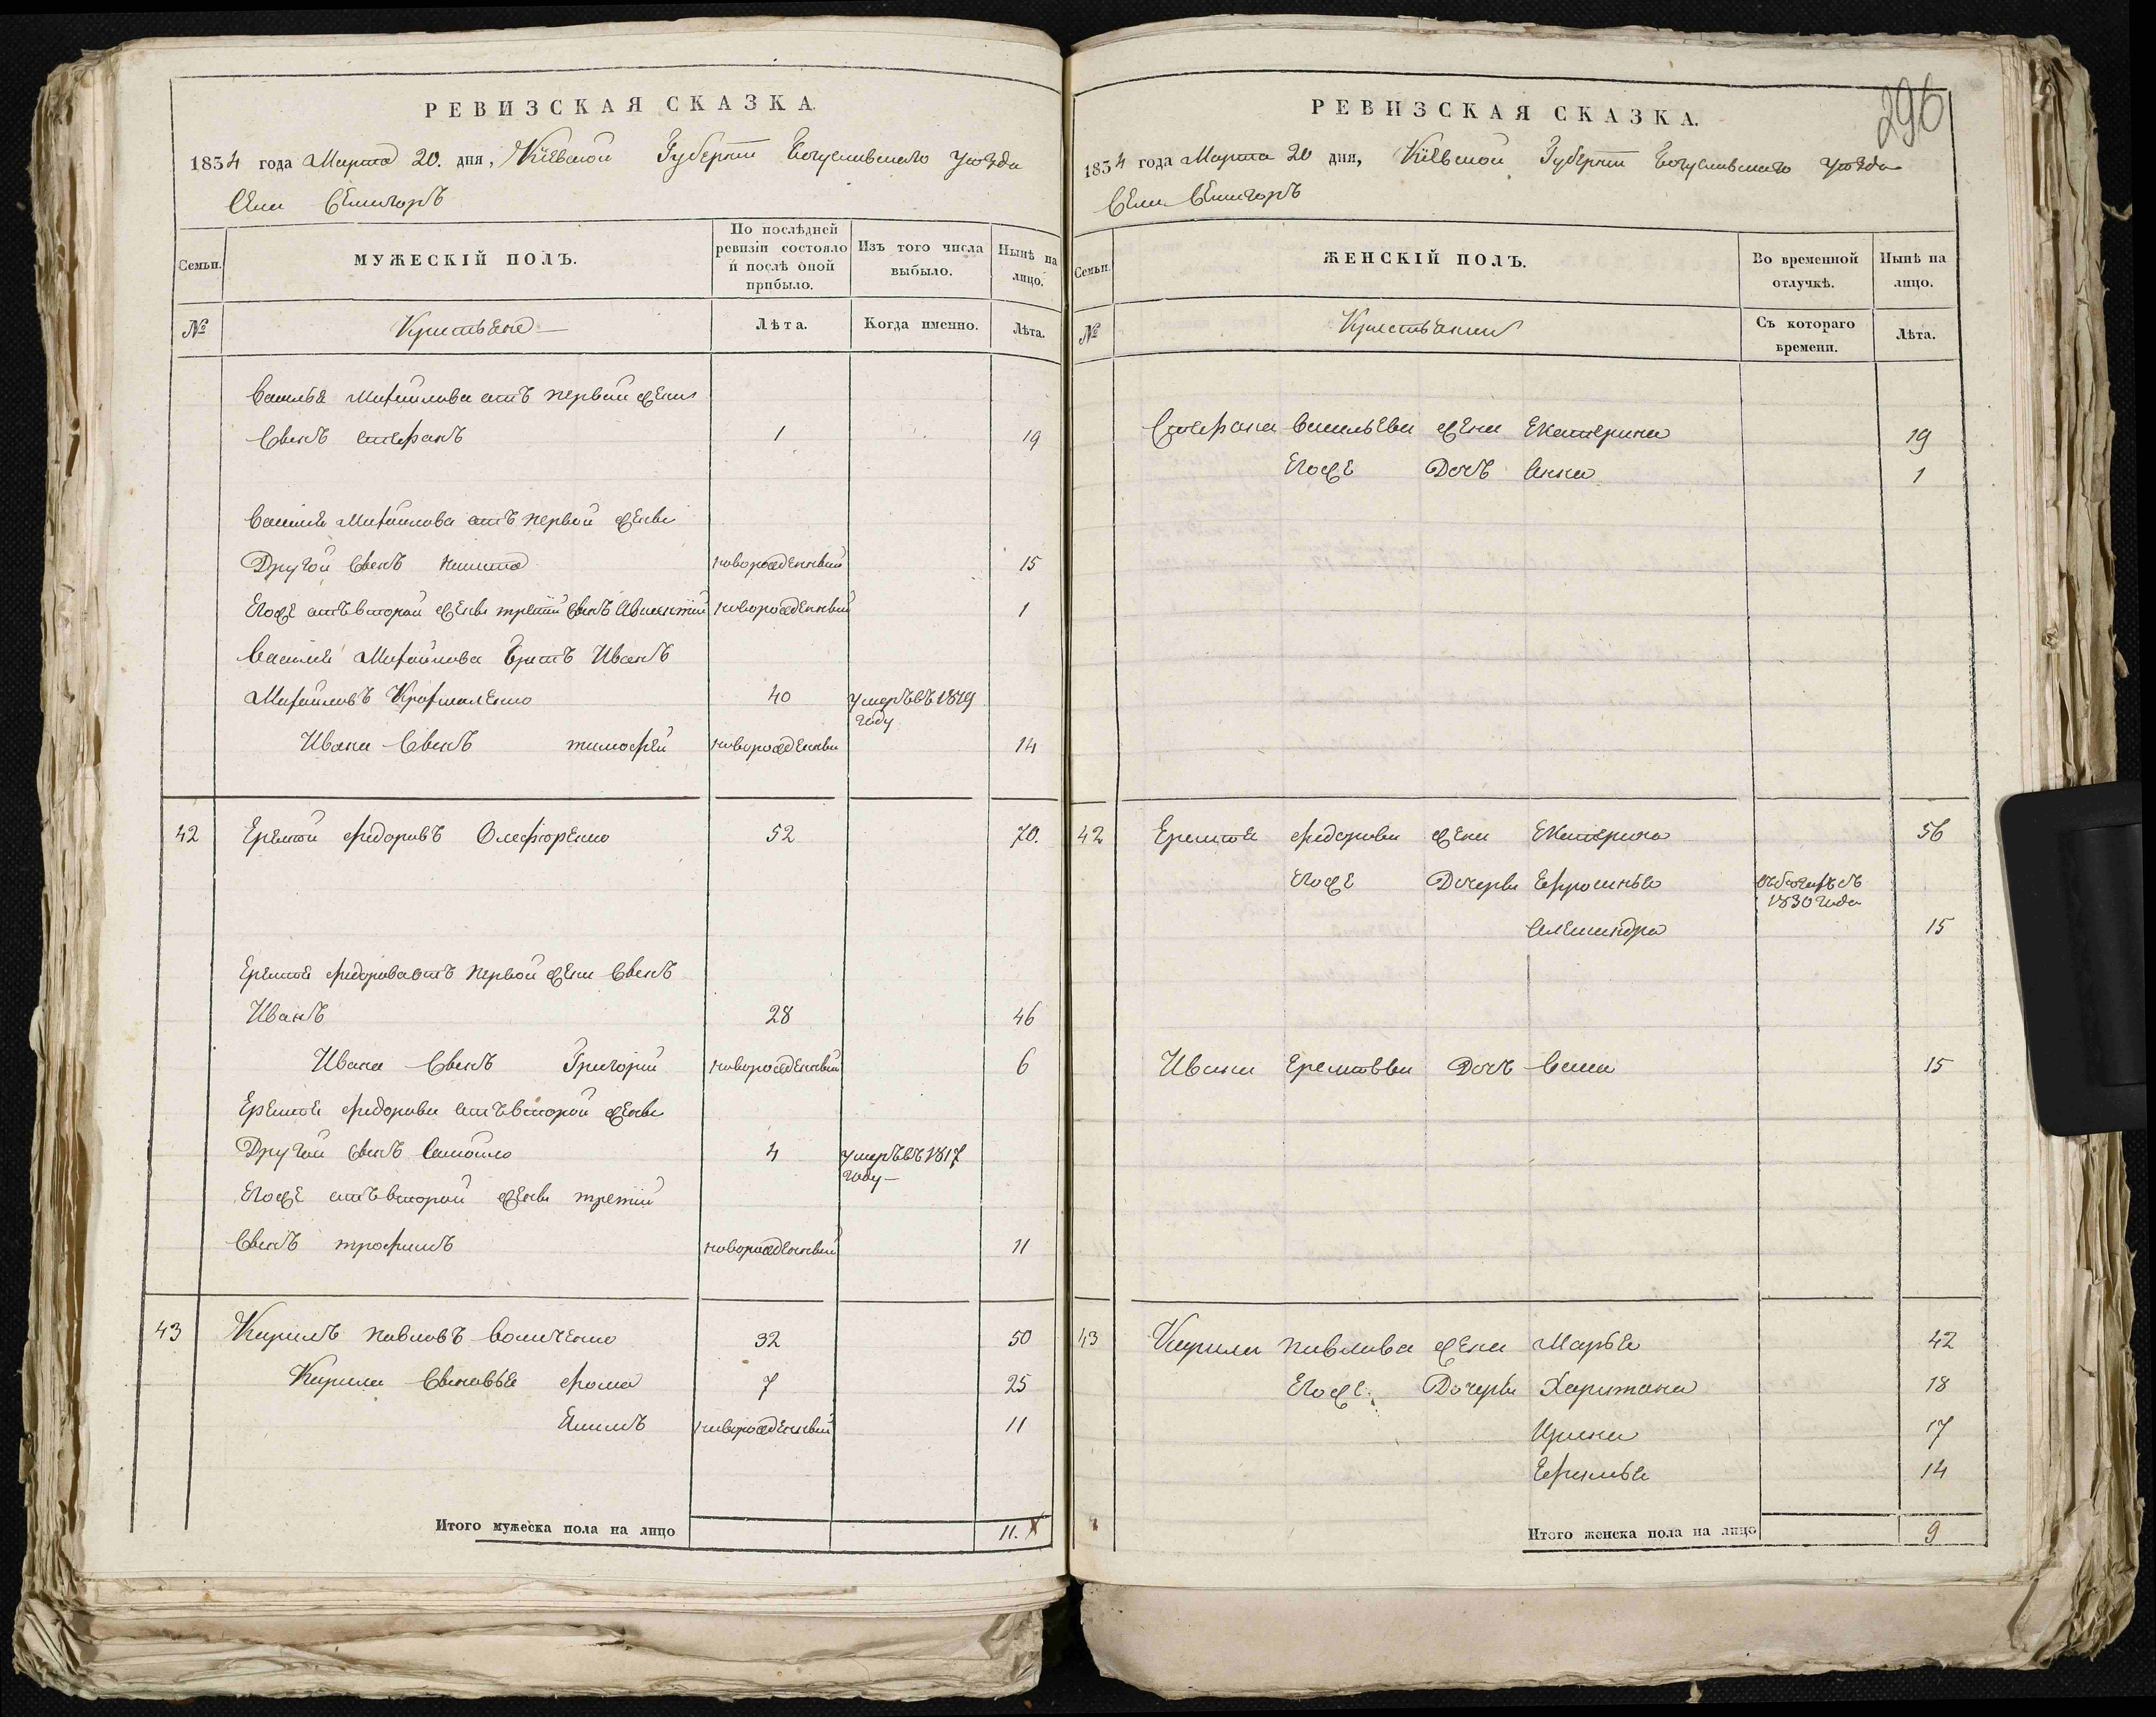 РЕВИЗСКАЯ СКАЗКА.
1834 года Марта 20. дня, Кіевской Губерніи Богуславскаго Уѣзда
Села Семигоръ
Семьи.
МУЖЕСКІЙ ПОЛЪ.
По послѣдней ревизіи состояло и послѣ оной прибыло.
Изъ того числа выбыло.
Нынѣ на лицо.
№
Крестьяне
Лѣта.
Когда именно.
Лѣта.
Василья Михайлова отъ первой жены
Сынъ Стефанъ 1 19
Василія Михайлова отъ первой жены
Другой Сынъ Никита новорожденный 15
Егоже отъ второй жены третій Сынъ новорожденный 1
Василія Михайлова Братъ Иванъ
Михайловъ 40 умеръ въ 1819 году
Ивана Сынъ тимофей новорожденны 14
42 Еремей федоровъ Олефіренко 52 70.
Еремея федорова отъ первой жены Сынъ
Иванъ 28 46
Ивана Сынъ Григорій новорожденный 6
Еремея федорова отъ второй жены
Другой Сынъ Самойло 4 умеръ въ 1817 году
Егоже отъ второй жены третій
Сынъ трофимъ новорожденный 11
43 Кирилъ павловъ 32 50
Кирила Сыновья фома 7 25
Екимъ новорожденный 11
Итого мужеска пола на лицо 11.
296
РЕВИЗСКАЯ СКАЗКА.
1834 года Марта 20 дня, Кіевской Губерніи Богуславскаго Уѣзда
Села Семигоръ
Семьи.
ЖЕНСКІЙ ПОЛЪ.
Во временной отлучкѣ.
Нынѣ на лицо.
№
Крестьянки
Съ котораго времени.
Лѣта.
Стефана Васильева жена Екатерина 19
Егоже Дочь Анна 1
42 Еремея федорова жена Екатерина 56
Егоже Дочеры Ефросинья въ бегахъ съ 1830 года
Александра 15
Ивана Еремѣева Дочь 15
43 Кирила павлова жена Марья 42
Егоже Дочеры Харитана 18
Ирина 17
Ефимья 14
Итого женска пола на лицо 9